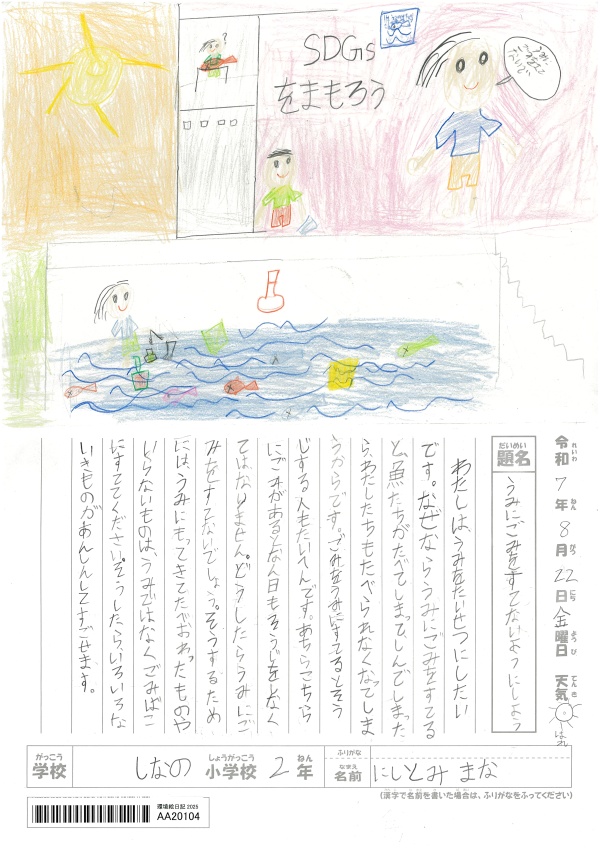 SDGs
をまもろう
うみに
ごみをすて
ないで
?
令和 7 年 8 月 22 日 金曜日 天気 はれ
れいわ ねん がつ にち ようび てんき
だいめい
題名
うみにごみをすてないようにしよう
わたしは、うみをたいせつにしたい
です。なぜならうみにごみをすてる
と、魚たちがたべてしまって、しんでしまった
ら、わたしたちもたべられなくなってしま
うからです。ごみをうみにすてるとそう
じする人もたいへんです。あちらこちら
にごみがあるとなん日もそうじをしなく
てはなりません。どうしたらうみにご
みをすてないでしょう。そうするため
には、うみにもってきてたべおわったものや
いらないものは、うみではなくごみばこ
にすててください。そうしたら、いろいろな
いきものがあんしんしてすごせます。
がっこう しょうがっこう ねん ふりがな
学校 しなの 小学校 2 年 なまえ 名前 にしとみ まな
(漢字で名前を書いた場合は、ふりがなをふってください)
環境絵日記 2025
AA20104